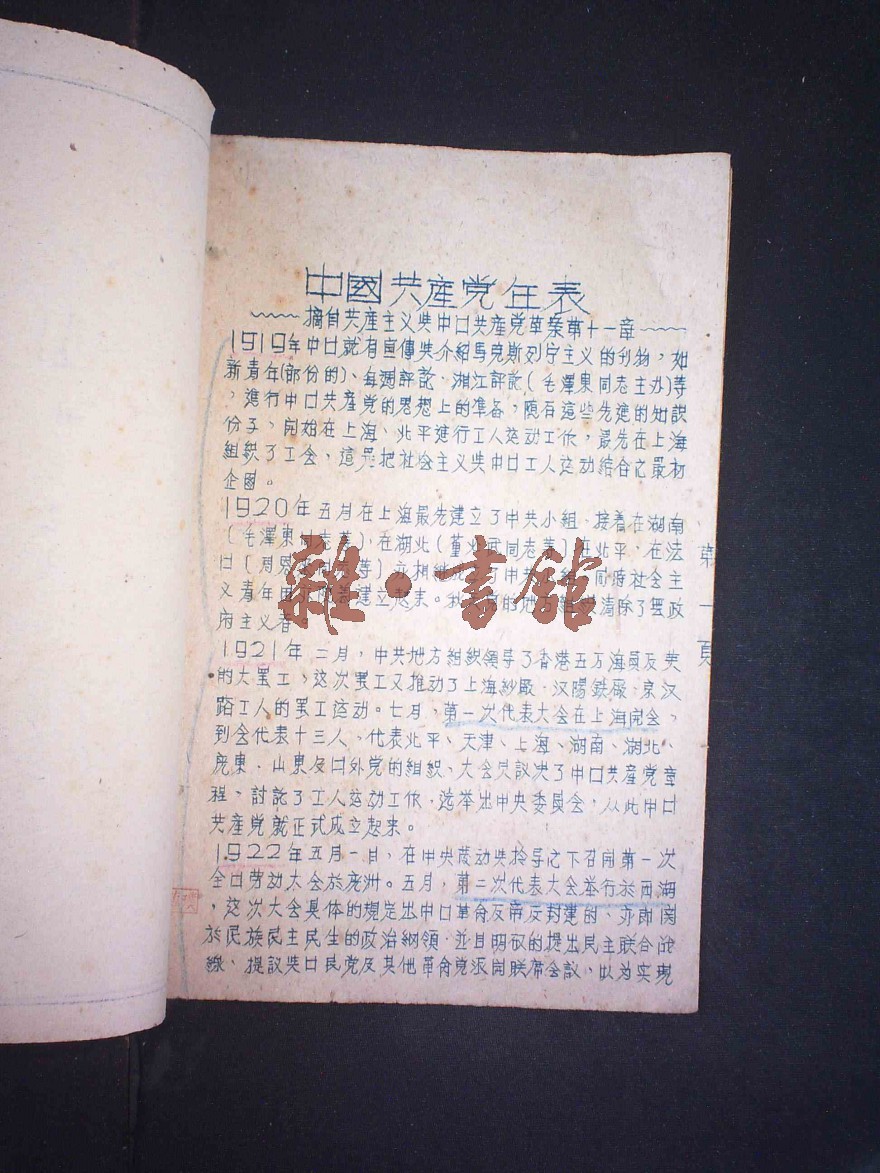 中國共產党年表
摘自共產主义与中囗共產党草案第十一章
1919年中囗就有宣傳与介紹馬克斯列宁主义的刊物，如
新青年(部份的)、每週評訖、湘江評訖(毛澤東同志主办)等
，進行中囗共產党的思想上的準备，随有這些先進的知識
份子，開始在上海、北平進行工人运动工作，最先在上海
組织了工会，這是把社会主义与中囗工人运动結合之最初
企图。
1920年五月在上海最先建立了中共小組，接着在湖南
(毛澤東同志等)，在湖北(董必武同志等)在北平，在法
囗(周恩 同志等)亦相继 了中共 同時社会主
义青年团亦 建立起来。 的地方 清除了無政
府主义者。
1921年二月，中共地方組织領导了香港五万海員及
的大罢工，这次罢工又推动了上海紗廠、汉陽鉄廠、京汉
路工人的罢工运动。七月，第一次代表大会在上海開会，
到会代表十三人、代表北平、天津、上海、湖南、湖北、
廣東、山東及囗外党的組织、大会 議决了中囗共產党章
程、討訖了工人运动工作，选举出中央委員会，从此中囗
共產党就正式成立起来。
1922年五月一日，在中央 动与領导之下召開第一次
全囗劳动大会於廣州。五月，第二次代表大会举行於西湖
，这次大会具体的規定出中囗革命反帝反封建的、亦即関
於民族民主民生的政治綱領，並且明确的提出民主联合战
線、提議与囗民党及其他革命党派開联席会議，以为实現
第一頁
雜·書館